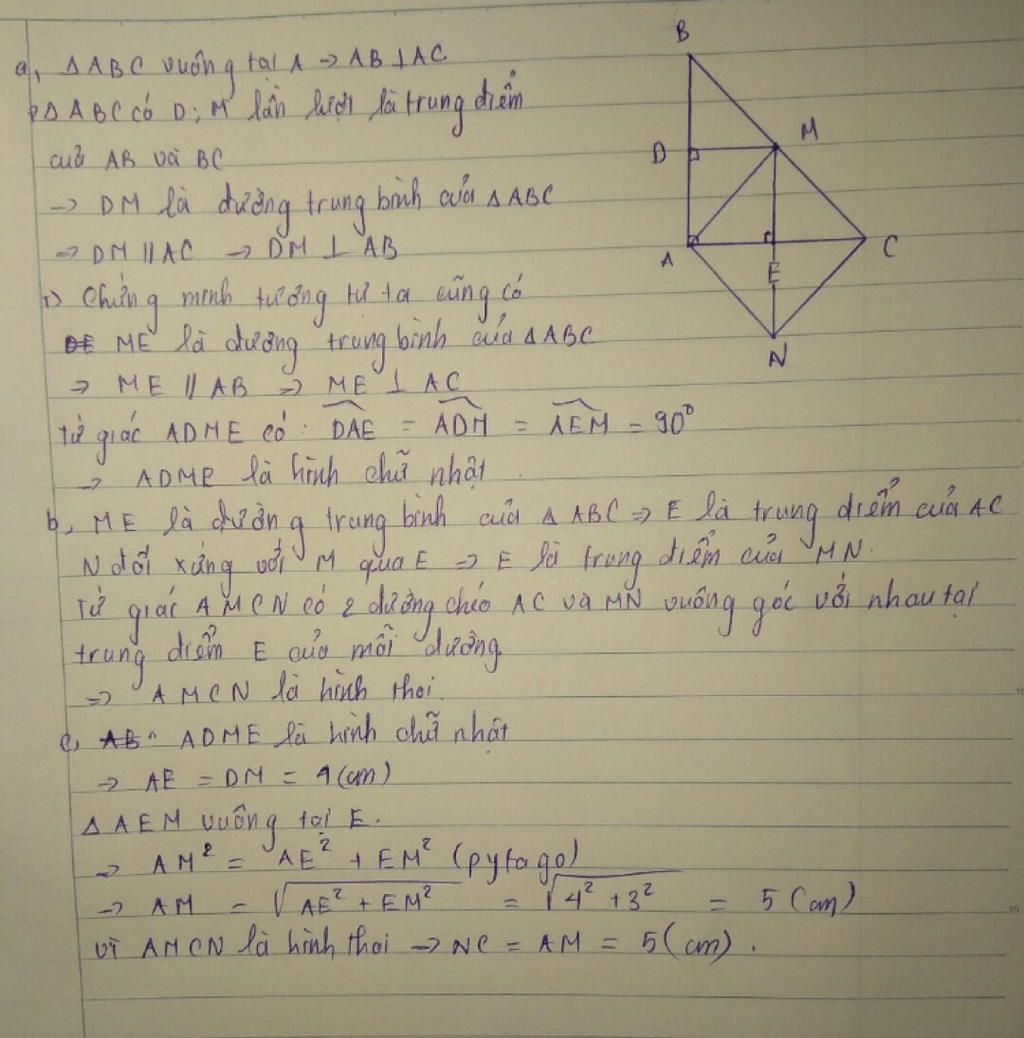 a, ΔABC vuông tại A → AB ⊥ AC
ΔABC có D; M lần lượt là trung điểm
của AB và BC
→ DM là đường trung bình của ΔABC
→ DM // AC → DM ⊥ AB
Chứng minh tương tự ta cũng có
ME là đường trung bình của ΔABC
→ ME // AB → ME ⊥ AC
Tứ giác ADME có: DAE = ADM = AEM = 90°
→ ADME là hình chữ nhật.
b, ME là đường trung bình của ΔABC → E là trung điểm của AC
N đối xứng với M qua E → E là trung điểm của MN.
Tứ giác AMCN có 2 đường chéo AC và MN vuông góc với nhau tại
trung điểm E của mỗi đường
→ AMCN là hình thoi.
c, ADME là hình chữ nhật
→ AE = DM = 4 (cm)
ΔAEM vuông tại E.
→ AM² = AE² + EM² (pytago)
→ AM = √AE² + EM² = √4² + 3² = 5 (cm)
Vì AMCN là hình thoi → NC = AM = 5 (cm).
B
D
M
A
E
C
N